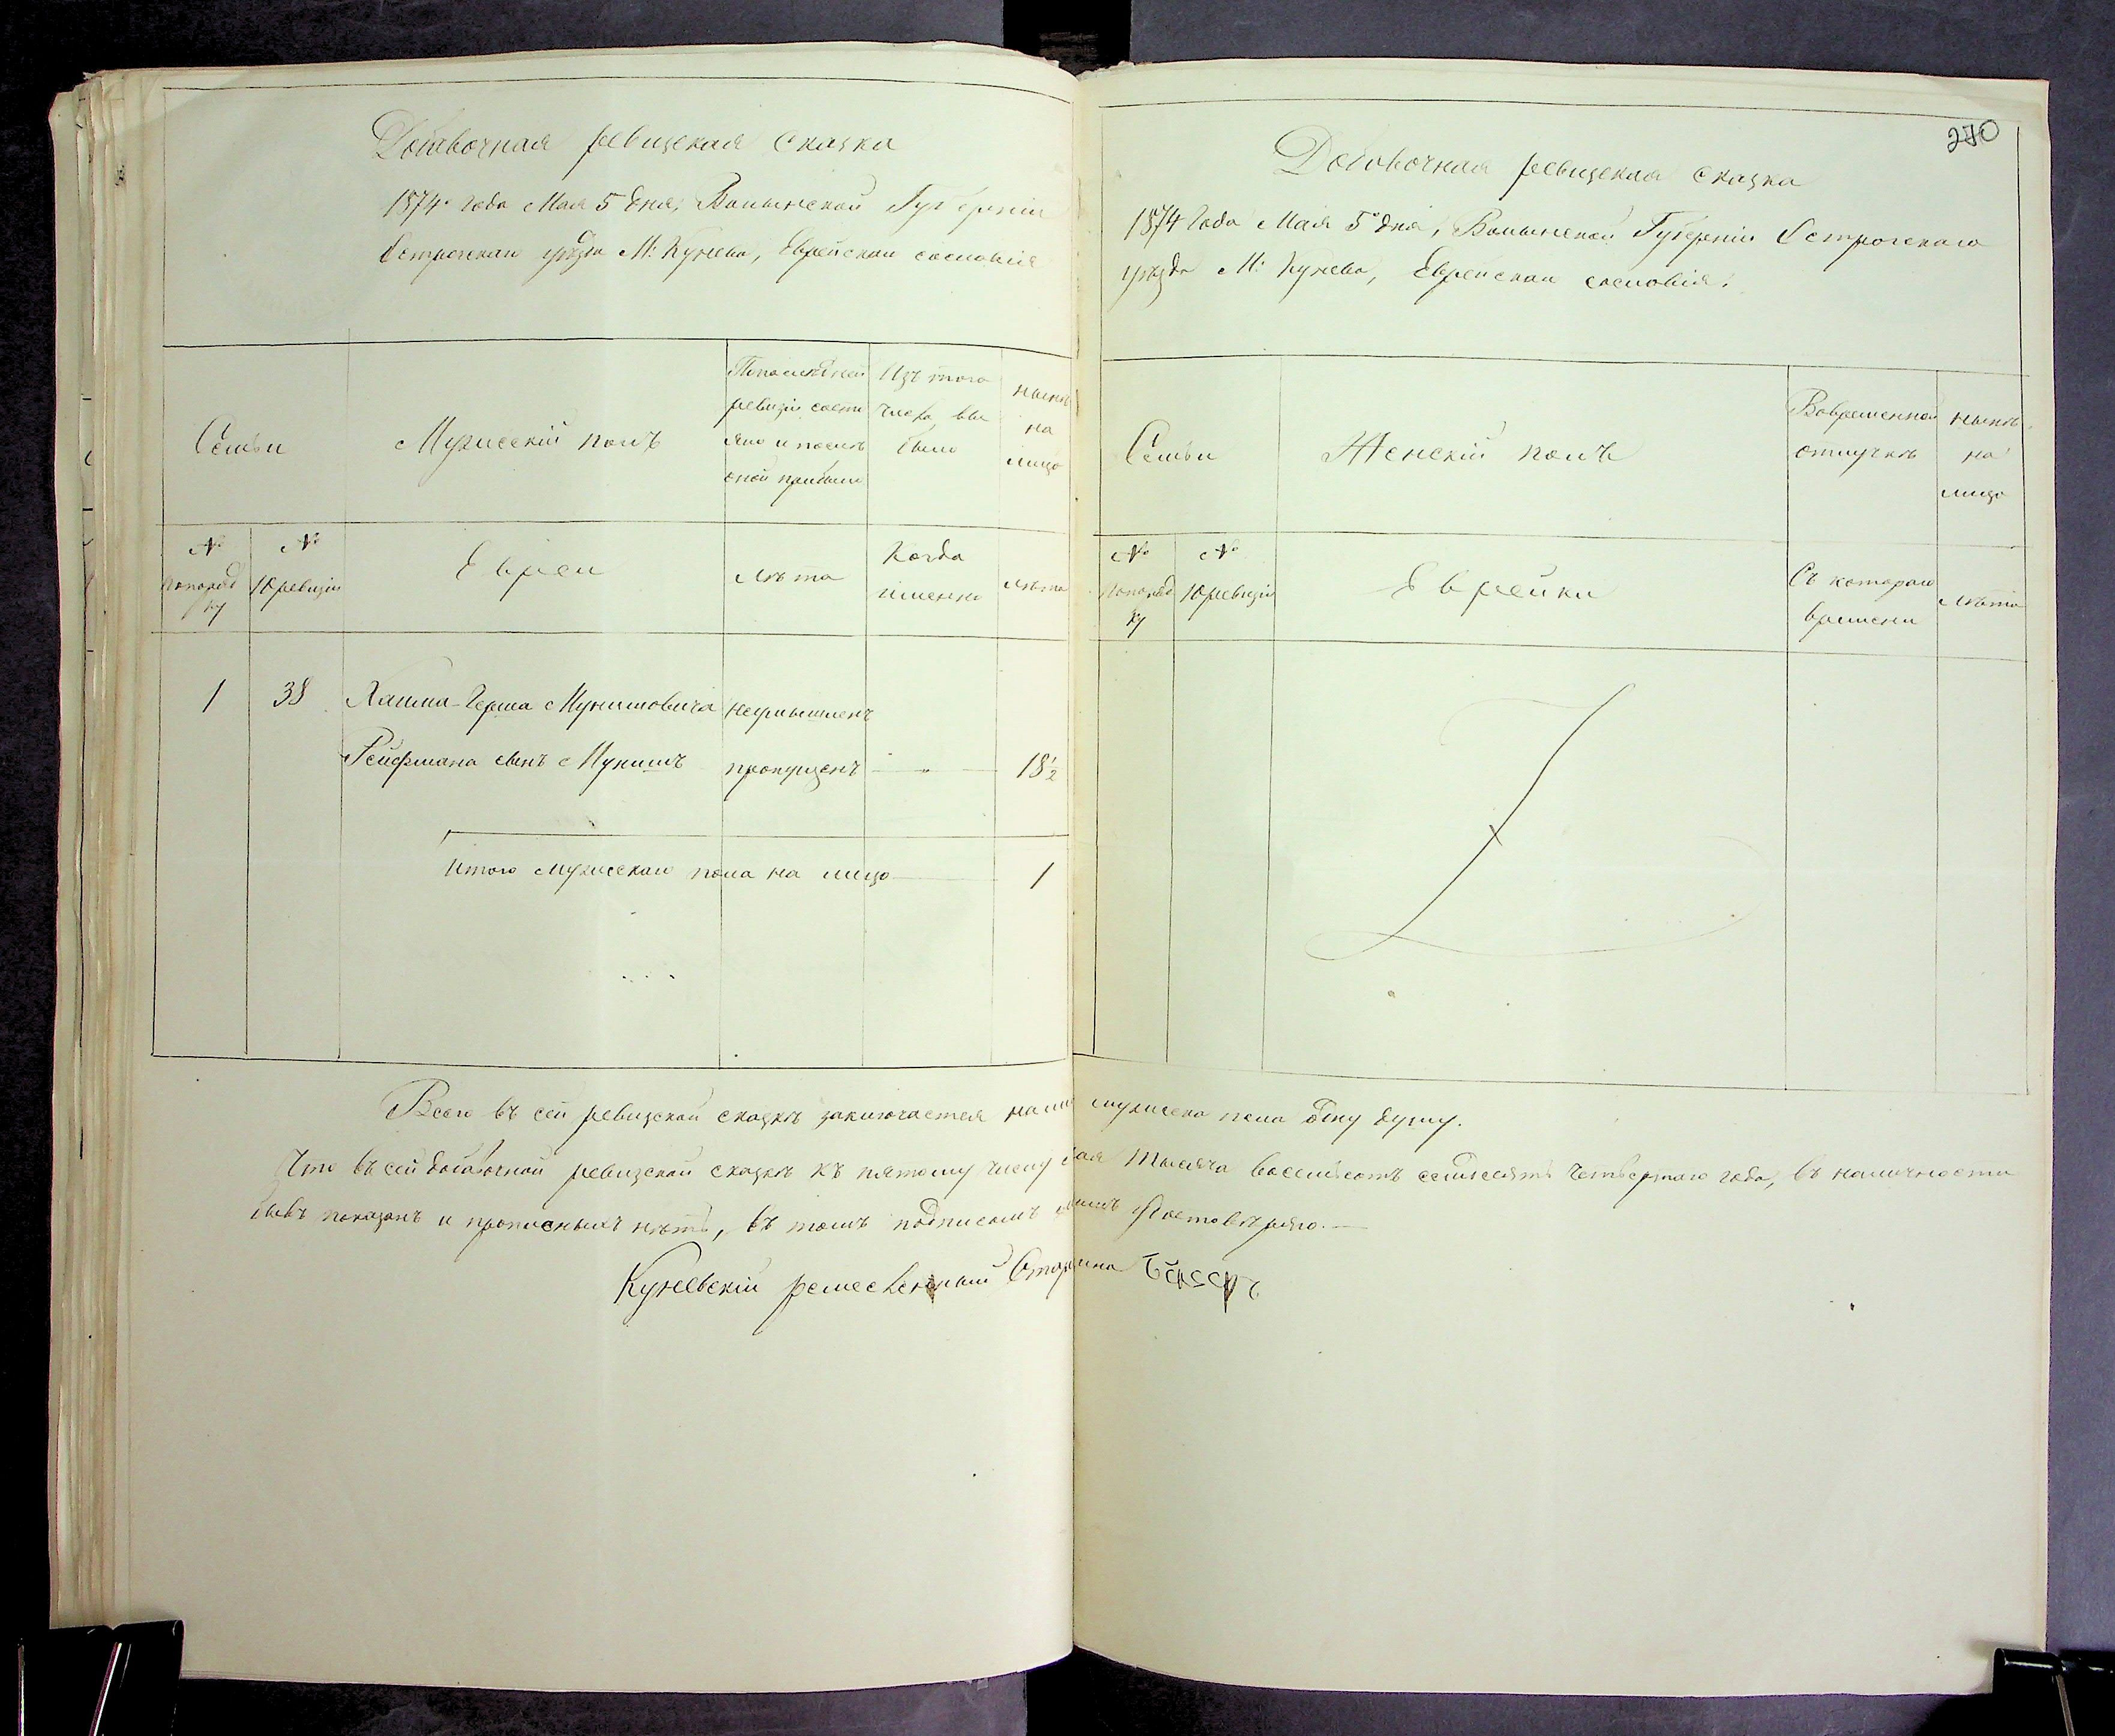 Добавочная ревизская сказка
1874 года Мая 5 дня, Волынской Губерніи
Острогскаго уѣзда М: Кунева, Еврейскаго сословія
Семьи
Мужескій полъ
По последней
ревизіи состо
яло и послѣ
оной прибыло
Изъ того
числа вы
было
нынѣ
на
лицо
№
по поряд
ку
№
10 ревизіи
Евреи
лѣта
Когда
именно
лѣта
1 38 Хаима-Герша Мунишовича неумышленъ
Рейфмана сынъ Мунишъ пропущенъ — „ — 18½
Итого мужескаго пола на лицо — 1
270
Добовочная ревизская сказка
1874 Года Мая 5 дня, Волынской Губерніи Острогскаго
уѣзда М: Кунева, Еврейскаго сословія.
Семьи
Женскій полъ
Во временной
отлучкѣ
нынѣ
на
лицо
№
по поряд
ку
№
10 ревизіи
Еврейки
Съ котораго
времени
лѣта
Всего въ сей ревизской сказкѣ заключается мужеска пола одну душу.
Что въ сей добавочной ревизской сказкѣ къ пятому числу Мая тысяча восемьсотъ семдесятъ четвертаго года, въ наличности
показанъ и прописныхъ нѣтъ, въ томъ подписомъ удостовѣряю. —
Куневскій ремесленный Старшина